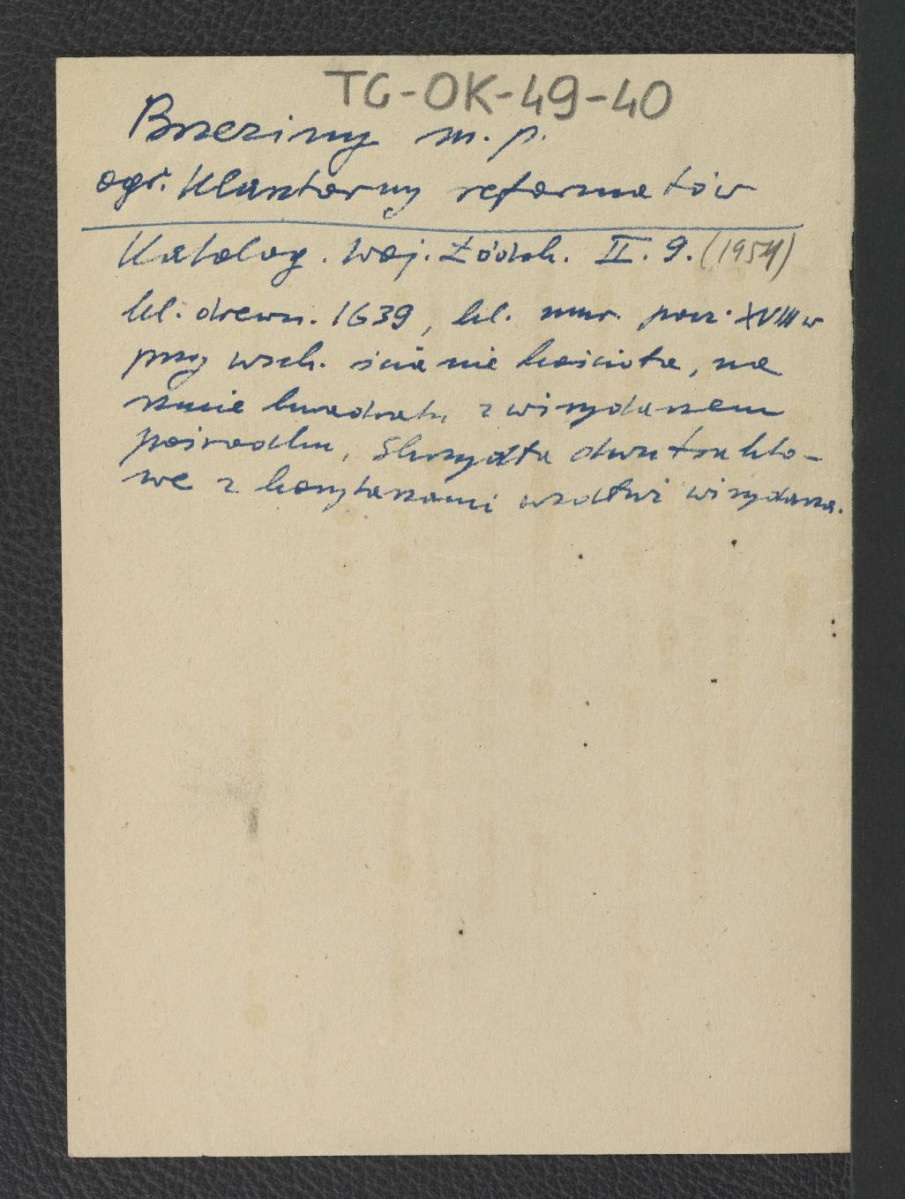 TG-OK-49-40
Brzeziny m. p.
ogr. klasztorny reformatów
Katalog. woj. Łódzk. II. 9. (1954)
kl. drewn. 1639, kl. mur. pocz. XVIII w
przy wsch. ścianie kościoła, na
rzucie kwadratu z wirydarzem
pośrodku, Skrzydła dwutrakto-
we z korytarzami wzdłuż wirydarza.